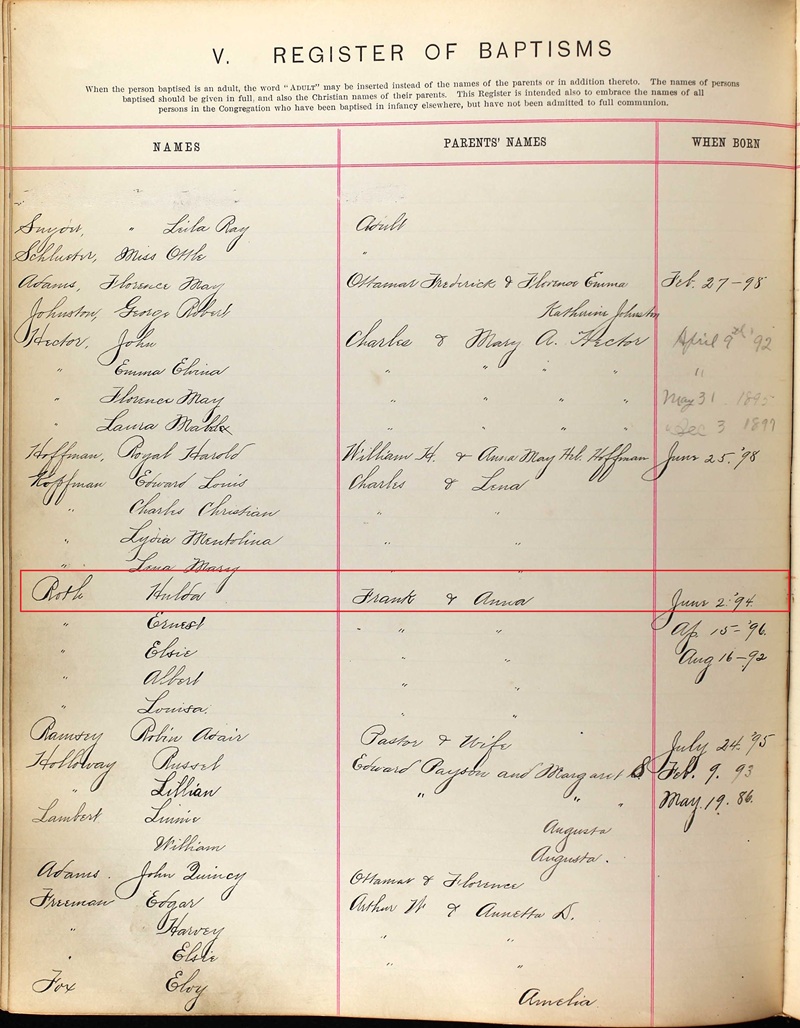 V. REGISTER OF BAPTISMS
When the person baptised is an adult, the word "ADULT" may be inserted instead of the names of the parents or in addition thereto. The names of persons
baptised should be given in full, and also the Christian names of their parents. This Register is intended also to embrace the names of all
persons in the Congregation who have been baptised in infancy elsewhere, but have not been admitted to full communion.
NAMES PARENTS' NAMES WHEN BORN
" Lula Ray Adult
Schlueter, Miss Otte "
Adams, Florence May Ottamar Frederick & Florence Emma Feb. 27-98
Johnston, George Robert Katherine Johnston
Hector, John Charles & Mary A. Hector April 9th '92
" Emma Elvina " " " " "
" Florence May " " " " May 31 1895
" Laura Mable " " " " Dec 3 1897
Hoffman, Royal Harold William H. & Anna May Hoffman June 25. '98
Hoffman Edward Louis Charles & Lena
" Charles Christian " "
" Lydia Mentolina " "
" Lena Mary
Roth Hulda Frank & Anna June 2. '94
" Ernest " " " Ap. 15-'96.
" Elsie " " Aug 16-92
" Albert " "
" Louisa. " "
Ramsey Robin Adair Pastor & Wife July 24. '95
Holloway Russel Edward Payson and Margaret S Feb. 9. 93
" Lillian " " " May. 19. 86.
Lambert Linnie Augusta
William Augusta.
Adams. John Quincy Ottamar & Florence
Freeman Edgar Arthur W. & Annetta D.
" Harvey " "
" Elsie " "
Fox Eloy Amelia